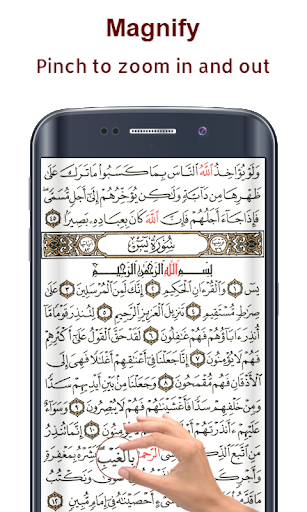 Magnify
Pinch to zoom in and out
وَلَوْ يُؤَاخِذُ ٱللَّهُ ٱلنَّاسَ بِمَا كَسَبُوا۟ مَا تَرَكَ عَلَىٰ
ظَهْرِهَا مِن دَآبَّةٍ وَلَٰكِن يُؤَخِّرُهُمْ إِلَىٰٓ أَجَلٍ مُّسَمًّى
فَإِذَا جَآءَ أَجَلُهُمْ فَإِنَّ ٱللَّهَ كَانَ بِعِبَادِهِۦ بَصِيرًۢا ٤٥
سُورَةُ يسٓ
بِسْمِ ٱللَّهِ ٱلرَّحْمَٰنِ ٱلرَّحِيمِ
يسٓ ١ وَٱلْقُرْءَانِ ٱلْحَكِيمِ ٢ إِنَّكَ لَمِنَ ٱلْمُرْسَلِينَ ٣ عَلَىٰ
صِرَٰطٍ مُّسْتَقِيمٍ ٤ تَنزِيلَ ٱلْعَزِيزِ ٱلرَّحِيمِ ٥ لِتُنذِرَ قَوْمًا مَّآ
أُنذِرَ ءَابَآؤُهُمْ فَهُمْ غَٰفِلُونَ ٦ لَقَدْ حَقَّ ٱلْقَوْلُ عَلَىٰٓ أَكْثَرِهِمْ
فَهُمْ لَا يُؤْمِنُونَ ٧ إِنَّا جَعَلْنَا فِىٓ أَعْنَٰقِهِمْ أَغْلَٰلًا فَهِىَ إِلَى
ٱلْأَذْقَانِ فَهُم مُّقْمَحُونَ ٨ وَجَعَلْنَا مِنۢ بَيْنِ أَيْدِيهِمْ سَدًّا
وَمِنْ خَلْفِهِمْ سَدًّا فَأَغْشَيْنَٰهُمْ فَهُمْ لَا يُبْصِرُونَ ٩ وَسَوَآءٌ
عَلَيْهِمْ ءَأَنذَرْتَهُمْ أَمْ لَمْ تُنذِرْهُمْ لَا يُؤْمِنُونَ ١٠ إِنَّمَا تُنذِرُ
مَنِ ٱتَّبَعَ ٱلذِّكْرَ ٱلرَّحْمَٰنَ بِٱلْغَيْبِ فَبَشِّرْهُ بِمَغْفِرَةٍ
وَأَجْرٍ وَنَكْتُبُ
أَحْصَيْنَٰهُ فِىٓ إِمَامٍ مُّبِينٍ ١٢